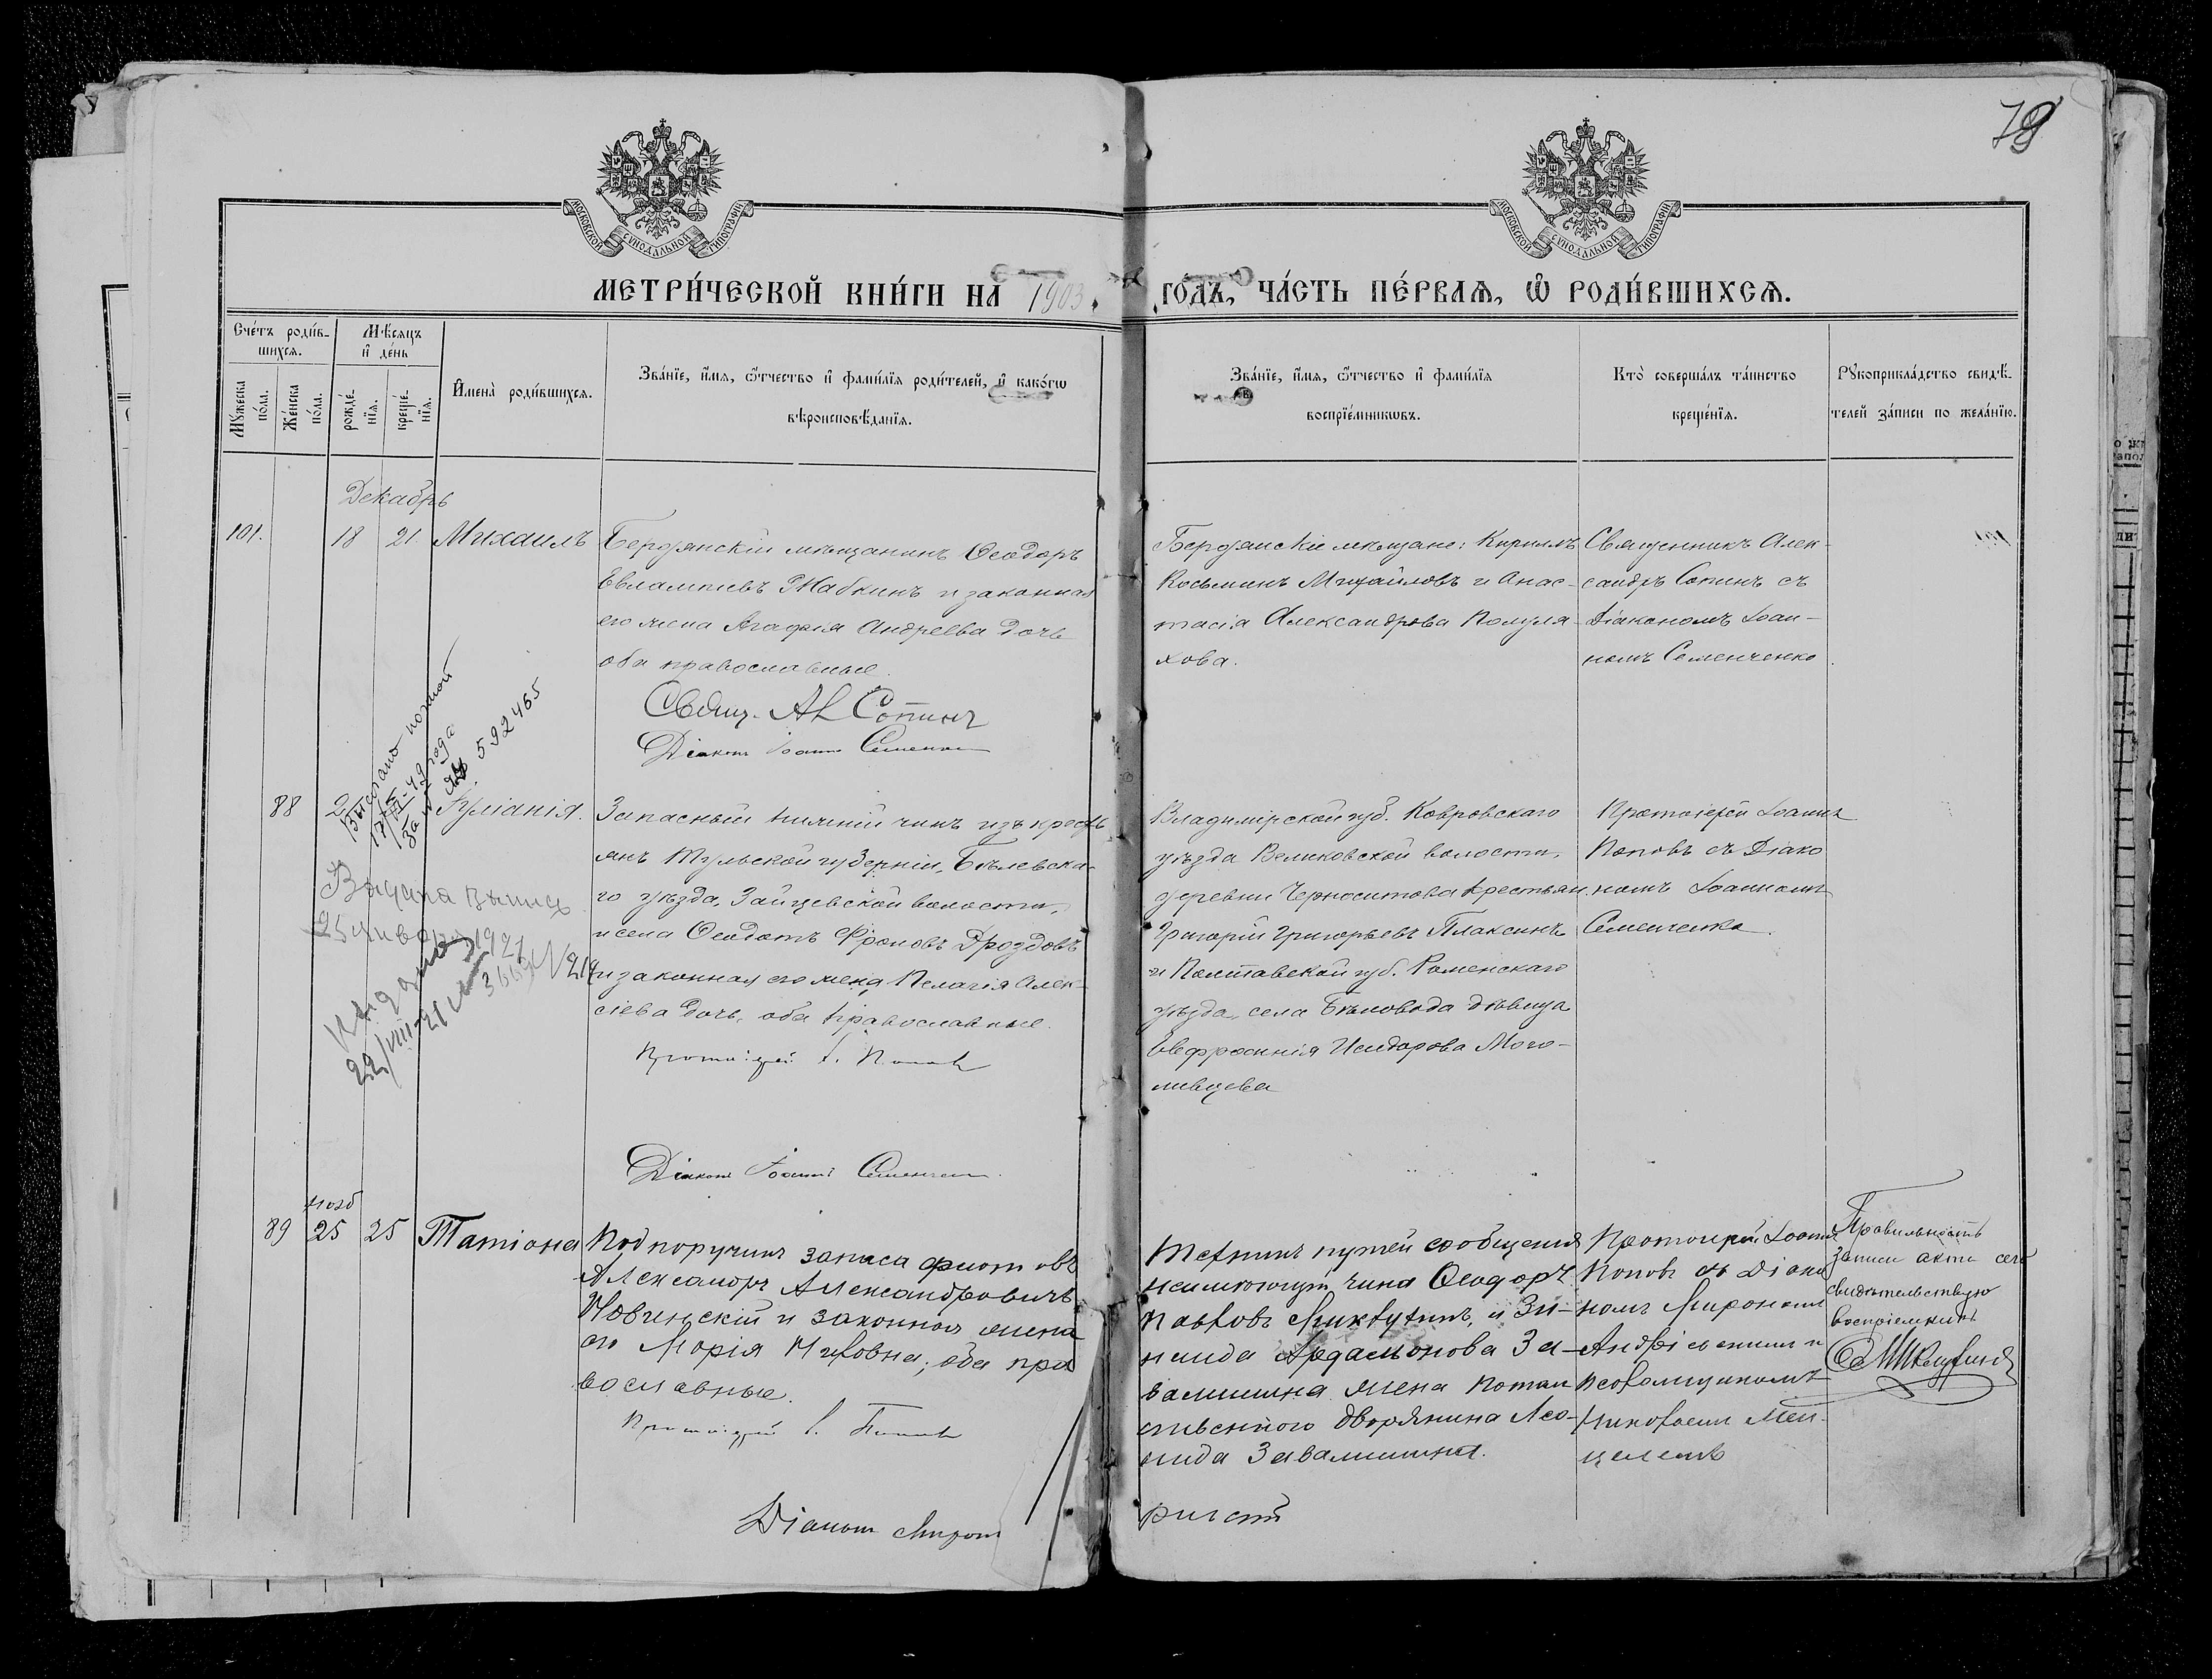 79
МОСКОВСКОЙ СѴНОДАЛЬНОЙ ТИПОГРАФІИ
МОСКОВСКОЙ СѴНОДАЛЬНОЙ ТИПОГРАФІИ
МЕТРИ́ЧЕСКОЙ КНИ́ГИ НА 1903 ГО́ДЪ, ЧА́СТЬ ПЕ́РВАѦ, Ѡ РОДИ́ВШИХСѦ.
Сче́тъ роди́в-
шихсѧ.
Мѣ́сѧцъ
и де́нь
Мꙋ́жеска по́ла.
Же́нска по́ла.
рожде́-
нїѧ.
креще́-
нїѧ.
Имена̀ роди́вшихсѧ.
Зва́нїе, и́мѧ, ѻ́тчество и фами́лїѧ роди́телей, и како́гѡ
вѣроисповѣ́данїѧ.
Зва́нїе, и́мѧ, ѻ́тчество и фами́лїѧ
воспрїе́мникѡвъ.
Кто̀ соверша́лъ та́инство
креще́нїѧ.
Рꙋкоприкла́дство свидѣ́-
телей за́писи по жела́нїю.
Декабрь
101. 18 21 Михаилъ
Бердянскій мѣщанинъ Ѳеодоръ
Евлампіевъ Жабкинъ и законная
его жена Агафія Андреева дочь
оба православные.
Свящ. Ал Сопинъ
Діаконъ Іоаннъ Семенченко
Бердянскіе мѣщане: Кириллъ
Косьминъ Михайловъ и Анас-
тасія Александрова Полуля-
хова.
Священникъ Алек-
сандръ Сопинъ съ
Діакономъ Іоан-
номъ Семенченко
101
88 Іуліанія.
Выслано почтой
49 года
592465
Выдана
25 января 1921
22/VIII-21
Запасный нижній чинъ изъ кресть
янъ Тульской губерніи, Бѣлевска-
го уѣзда, Зайцевской волости,
и села Ѳеодотъ Фроловъ Дроздовъ
и законная его жена Пелагія Алек-
сіева дочь, оба православные.
Протоіерей І. Поповъ
Діаконъ Іоаннъ Семенченко
Владимірской губ. Ковровскаго
уѣзда Великовской волости,
деревни Черноситова крестьян.
Григорій Григорьевъ Плаксинъ
и Полтавской губ. Роменскаго
уѣзда, села Бѣловода дѣвица
Евфросинія Исидорова Мого-
ливцева
Протоіерей Іоаннъ
Поповъ съ Діако
номъ Іоанномъ
Семенченко.
нояб
89 25 25 Татіана
Подпоручикъ запаса флота
Александръ Александровичъ
и законная жена
его Марія Львовна, оба пра
вославные.
Протоіерей І. Поповъ
Діаконъ Миронъ
Техникъ путей сообщенія
неимѣющій чина Ѳеодоръ
Павловъ и Зи-
наида Ардаліонова За-
валишина жена потом
ственного дворянина Лео-
нида Завалишина.
Протоіерей Іоаннъ
Поповъ съ Діако
номъ Мирономъ
Андріевскимъ и
псаломщикомъ
Николаемъ
Правильность
записи акта сего
свидѣтельствую
воспріемникъ